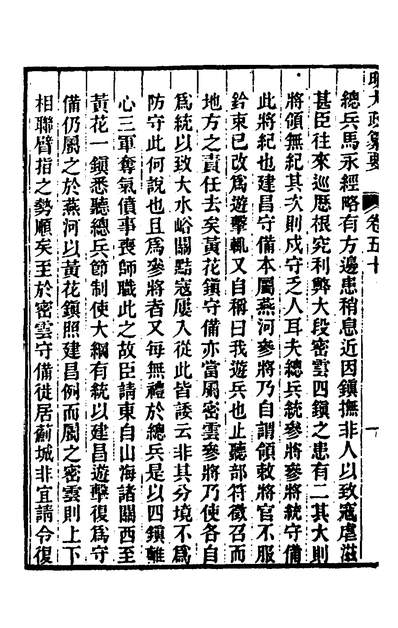 明大政纂要
卷五十
一
總兵馬永經略有方邊患稍息近因鎮撫非人以致寇虐滋
甚臣往來巡歷根究利弊大段密雲四鎮之患有二其大則
將領無紀其次則戍守乏人耳夫總兵統參將參將統守備
此將紀也建昌守備本屬燕河參將乃自謂領敕將官不服
鈐束已改為遊擊輒又自稱曰我遊兵也止聽部符徵召而
地方之責任去矣黃花鎮守備亦當屬密雲參將乃使各自
為統以致大水峪關黠寇屢入從此皆諉云非其分境不為
防守此何說也且為參將者又每無禮於總兵是以四鎮離
心三軍奪氣僨事喪師職此之故臣請東自山海諸關西至
黃花一鎮悉聽總兵節制使大綱有統以建昌遊擊復為守
備仍屬之於燕河以黃花鎮照建昌例而屬之密雲則上下
相聯臂指之勢順矣至於密雲守備徙居薊城非宜請令復